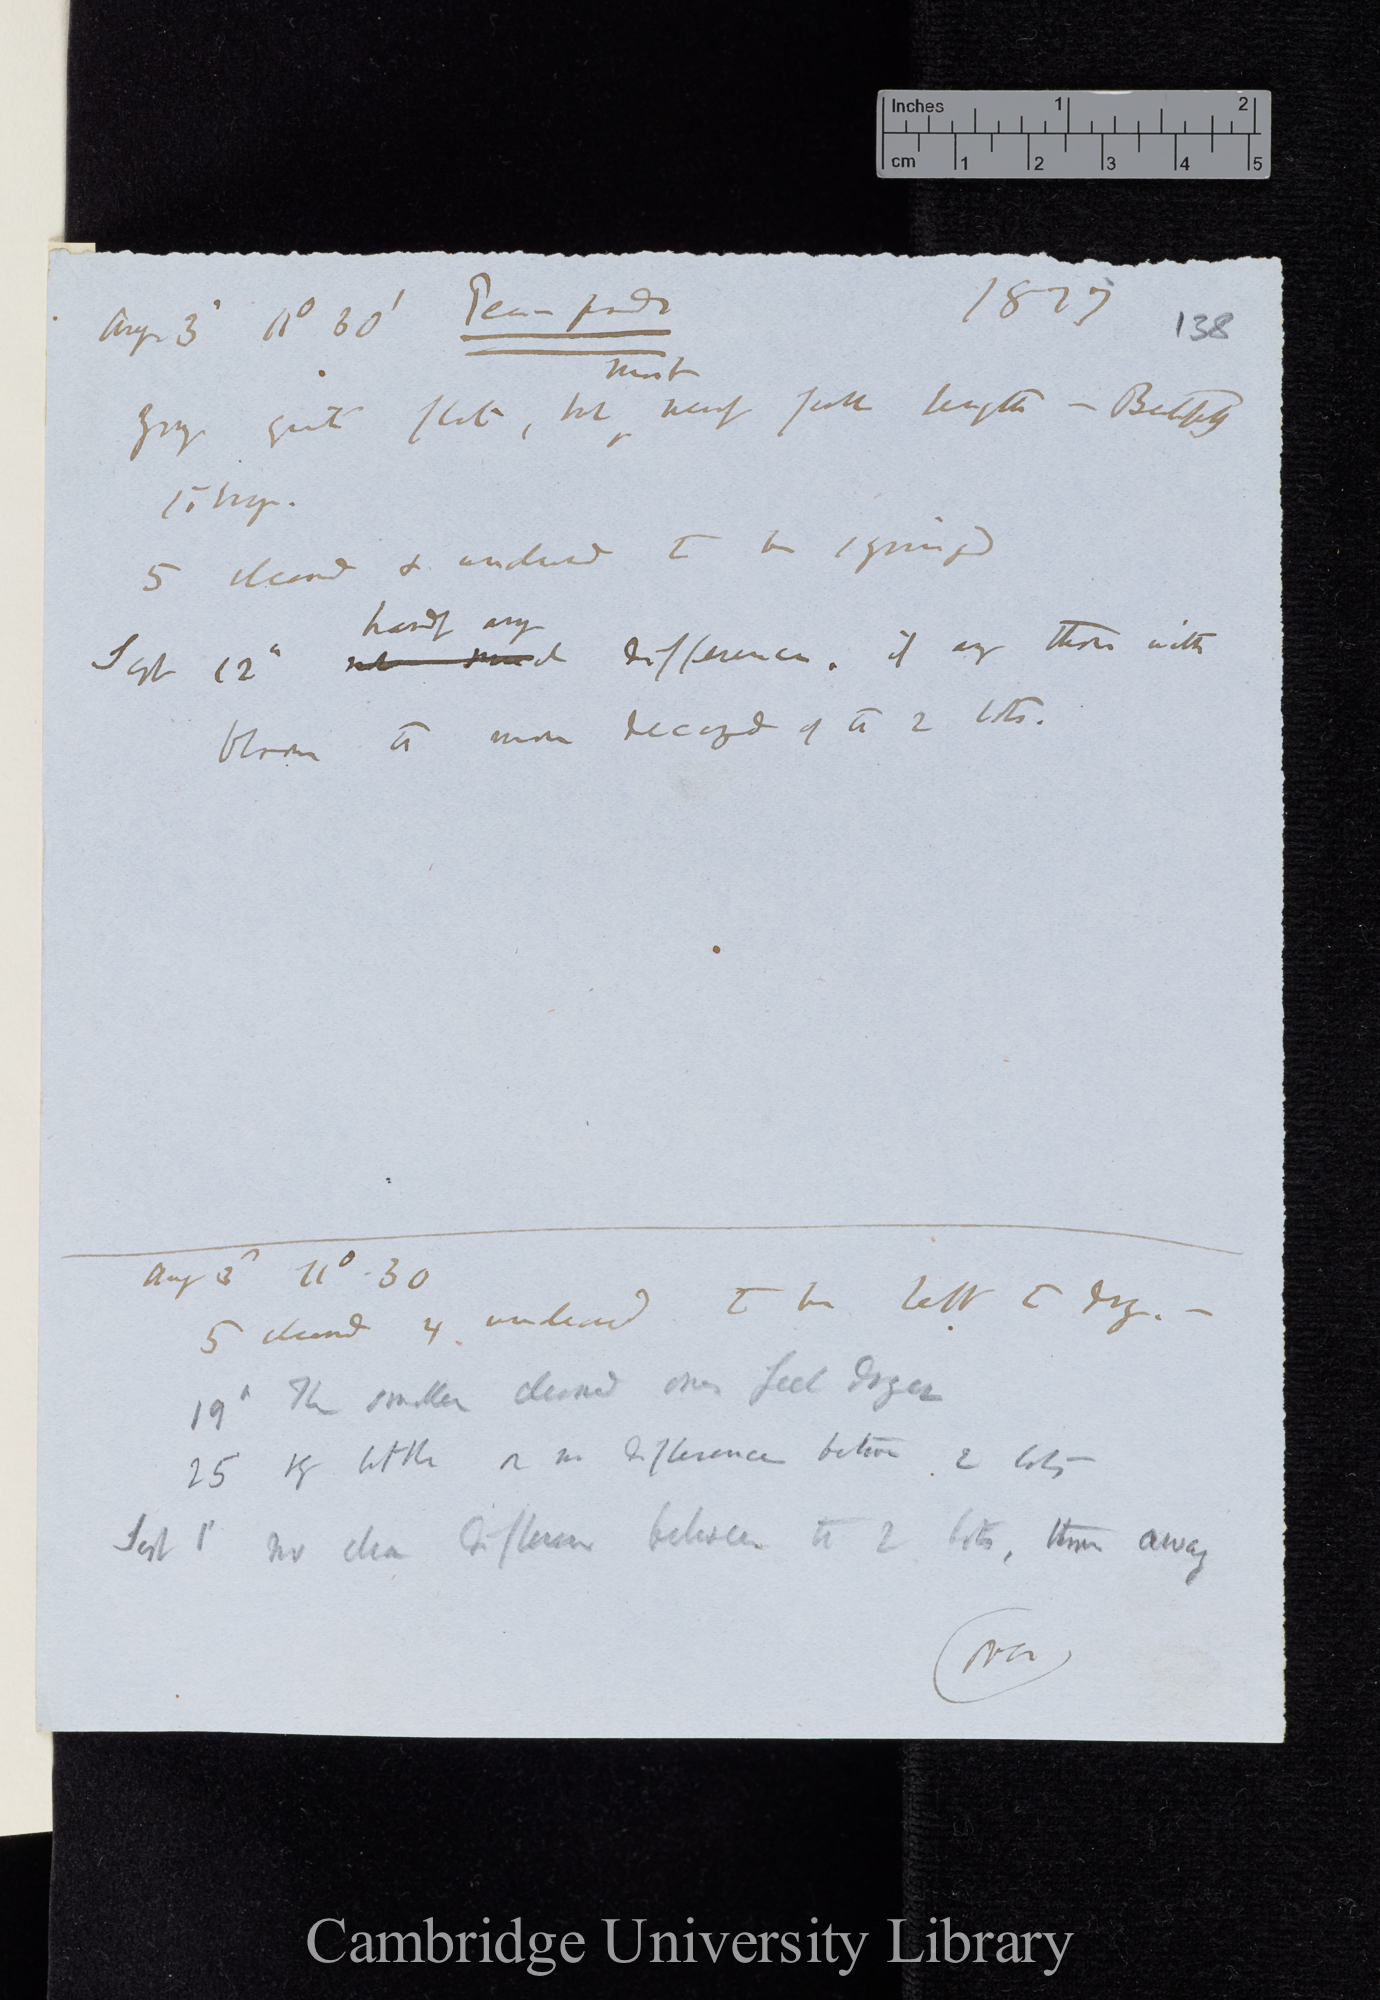 Inches 1 2
cm 1 2 3 4 5
Aug 3d 11° 30' Pea-pods 1877 138
most
Young quite flat, but nearly full length — Beautifully
blooming.
5 cleaned & uncleaned to be syringed
hardly any
Sept 12th not much difference, if any those with
bloom the more decayed of the 2 lots.
Aug 3d 11° 30
5 cleaned & uncleaned to be left to dry. —
19th The smaller cleaned ones feel dryer
25 very little or no difference between 2 lots
Sept 1st no clear difference between the 2 lots, threw away
(over)
Cambridge University Library